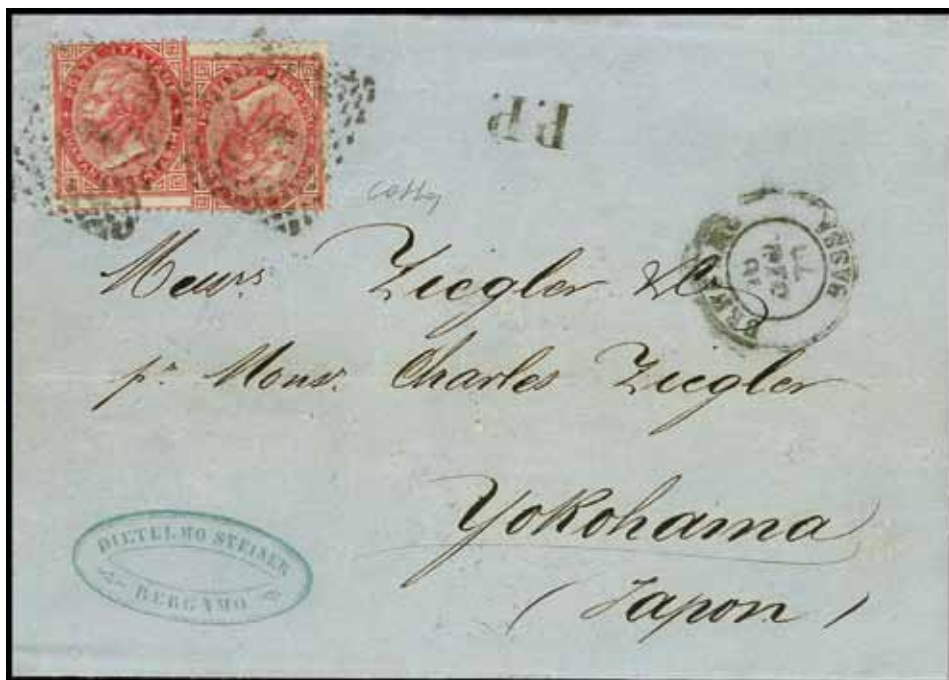 POSTE ITALIANE
P.P.
Messrs Ziegler & Co
pr. Monsr. Charles Ziegler
Yokohama
( Japon )
DIETELMO STEINER
BERGAMO